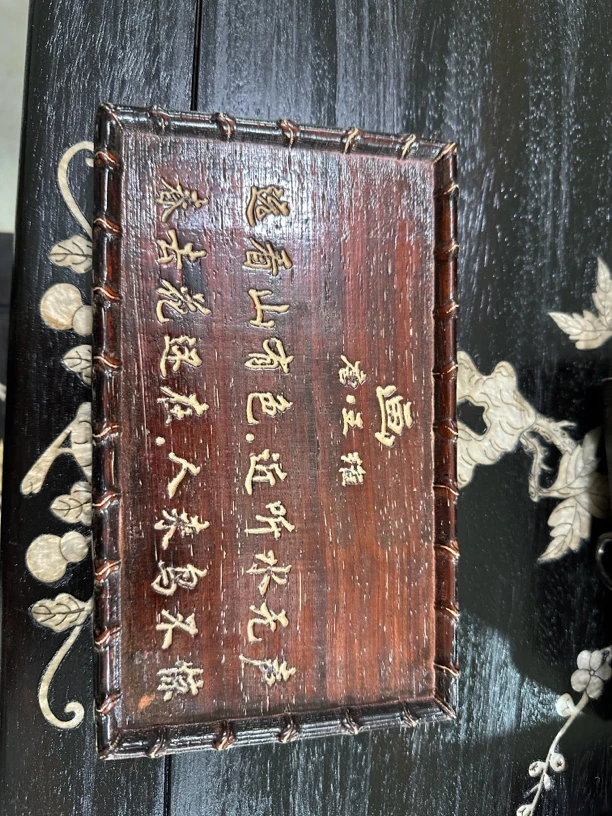 画
唐·王維
遠看山有色.近听水无声
春去花還在.人来鳥不惊